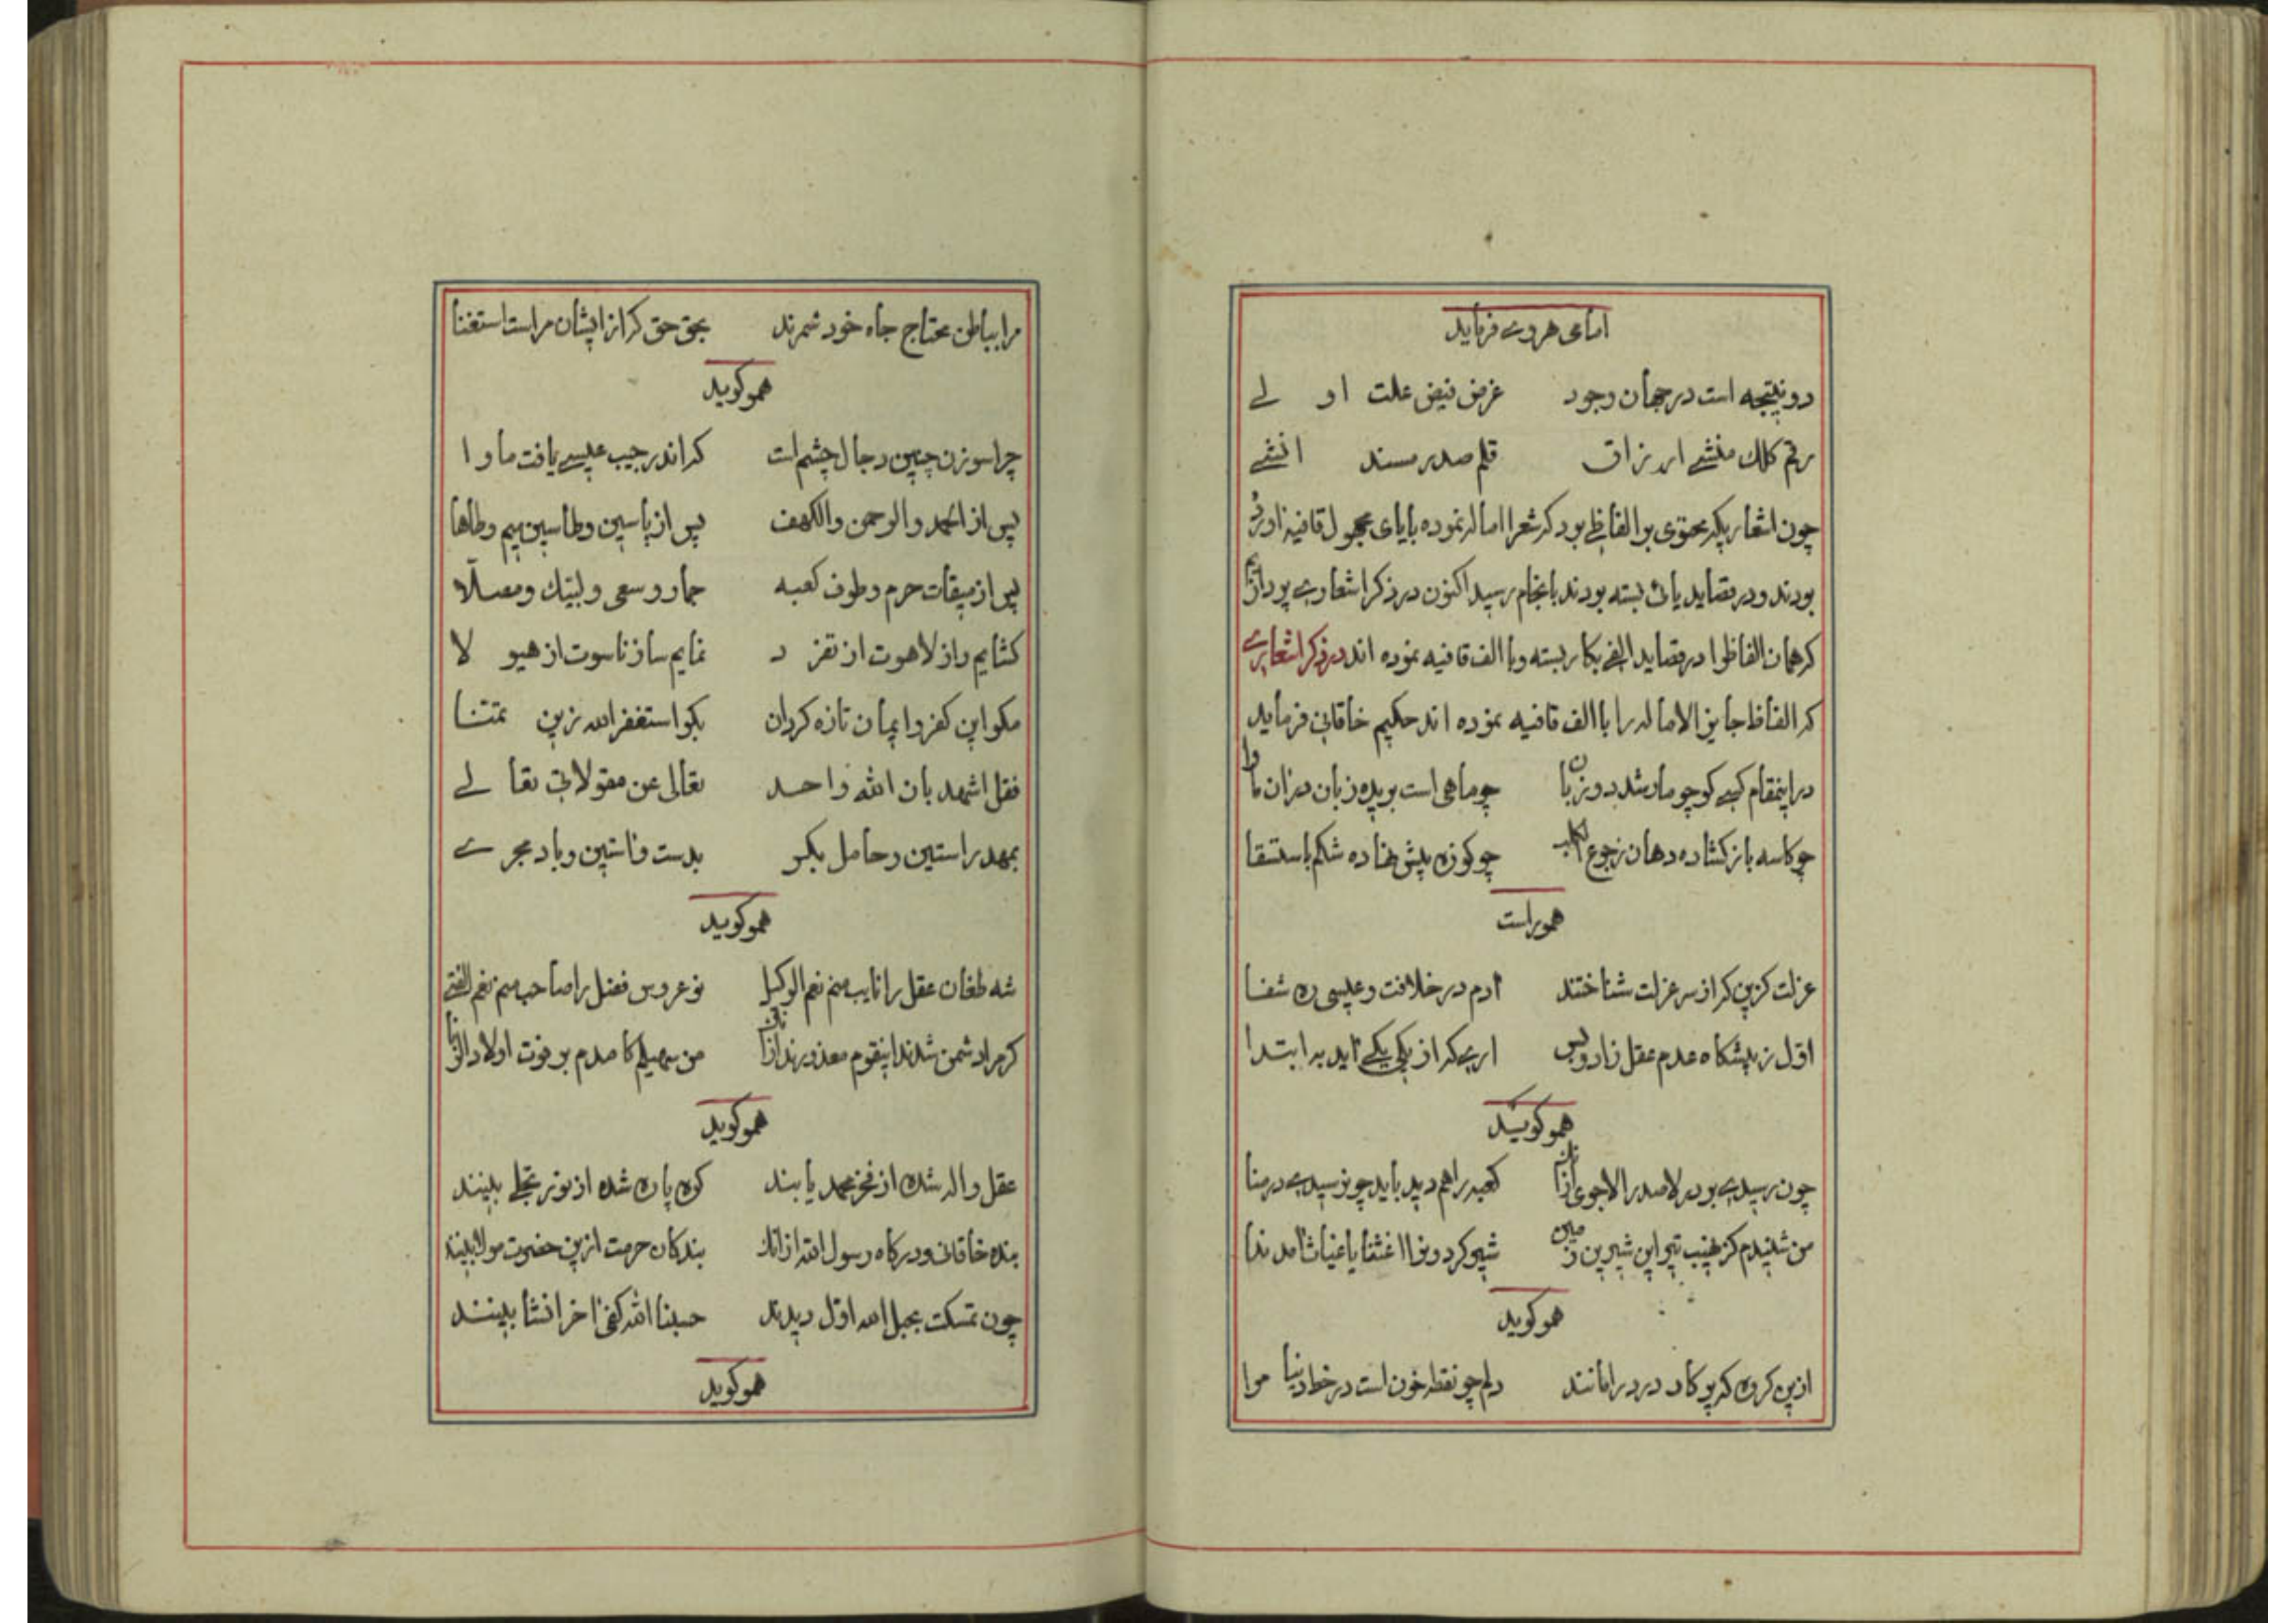 امامی هروی فرماید
دو نتیجه است در جهان وجود غرض فیض علت اولی
رقم کلک منشی ارزاق قلم صدر مسند انشی
چون اشعاریکه محتوی بر الفاظی بود که شعرا اماله نموده بایای مجهول قافیه آورده
بودند و در قصاید یائی بسته بودند بانجام رسید اکنون در ذکر اشعاری پردازیم
که همان الفاظ را در قصاید الفی بکار بسته و با الف قافیه نموده اند در ذکر اشعاری
که الفاظ جایز الاماله را با الف قافیه نموده اند حکیم خاقانی فرماید
در اینمقام کسی کو چو مار شد دو زبان چو ماهی است بریده زبان در آن ماوا
چو کاسه باز کشاده دهان ز جوع الکلب چو کوزه پیش نهاده شکم باستسقا
هموراست
عزلت کزین که از سر عزلت شناختند آدم در خلافت و عیسی ره شفا
اول ز پیشکاه عدم عقل زاد و بس آری که از یکی یکی آید به ابتدا
همو کوید
چون رسیدی بر در لا صدر الا جوی از آنک کعبه را هم دید باید چو رسیدی در منا
من شنیدم کز نهیب تیر این شیر زمین شیر کردونرا اغثنا یا غیاث آمد ندا
همو کوید
ازین کروه که پرکار در درامانند دلم چو نقطه خون است در خط دنیا مرا
مرا بباطن محتاج جاه خود شمرند بحق حق که از ایشان مراست استغنا
همو کوید
چرا سوزن چنین دجال چشم است که اندر جیب عیسی یافت ماوا
پس از الحمد و الرحمن والکهف پس از یاسین و طاسین میم و طاها
پس از میقات حرم و طوف کعبه جمار و سعی و لبیک و مصلّا
کشایم راز لاهوت از تفرد نمایم ساز ناسوت از هیولا
مکو این کفر و ایمان تازه کردان بکو استغفر الله زین تمتنا
فقل اشهد بان الله واحد تعالی عن مقولاتی تعالی
بمهد راستین و حامل بکر بدست و آستین و باد مجری
همو کوید
شه طغان عقل را نایب منم نعم الوکیل نو عروس فضل را صاحب منم نعم الفتی
کر مرا دشمن شدند اینقوم معذورند از آنک من سهیلم کامدم بر موت اولاد الزنا
همو کوید
عقل واله شده از فخر محمد یابند کوه پاره شده از نور تجلی بینند
بنده خاقانی و درکاه رسول الله از آنک بندکان حرمت ازین حضرت مولا بینند
چون تمسکت بحبل الله اول دیدند حسبنا الله کفی آخر انشا بینند
همو کوید